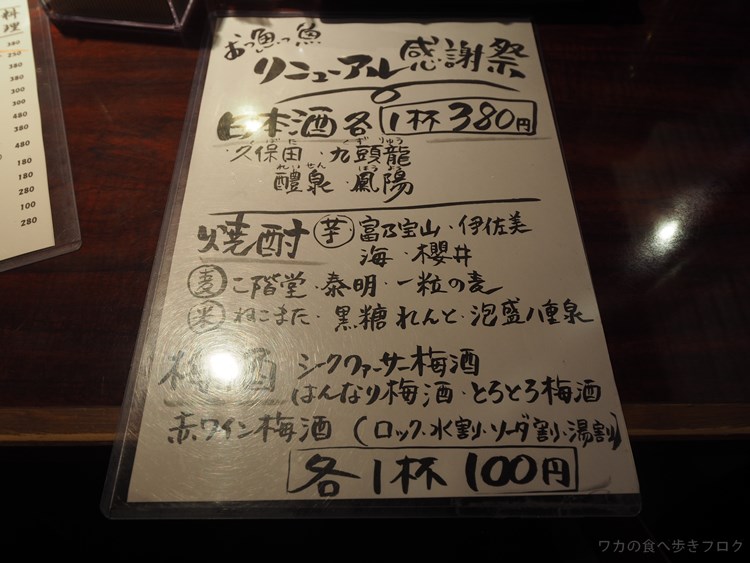 料理
380
250
380
300
300
480
380
480
180
180
280
100
280
おっ魚っ魚
リニューアル感謝祭
日本酒各 1杯380円
くぼた くずりゅう
・久保田・九頭龍
れいせん ほうよう
醴泉・鳳陽
焼酎 芋 富乃宝山・伊佐美
海・櫻井
麦 二階堂・泰明・一粒の麦
米 ねこまた・黒糖れんと・泡盛八重泉
梅酒 シークヮーサー梅酒
はんなり梅酒・とろとろ梅酒
赤ワイン梅酒 (ロック・水割・ソーダ割・湯割)
各1杯 100円
ワカの食べ歩きブログ